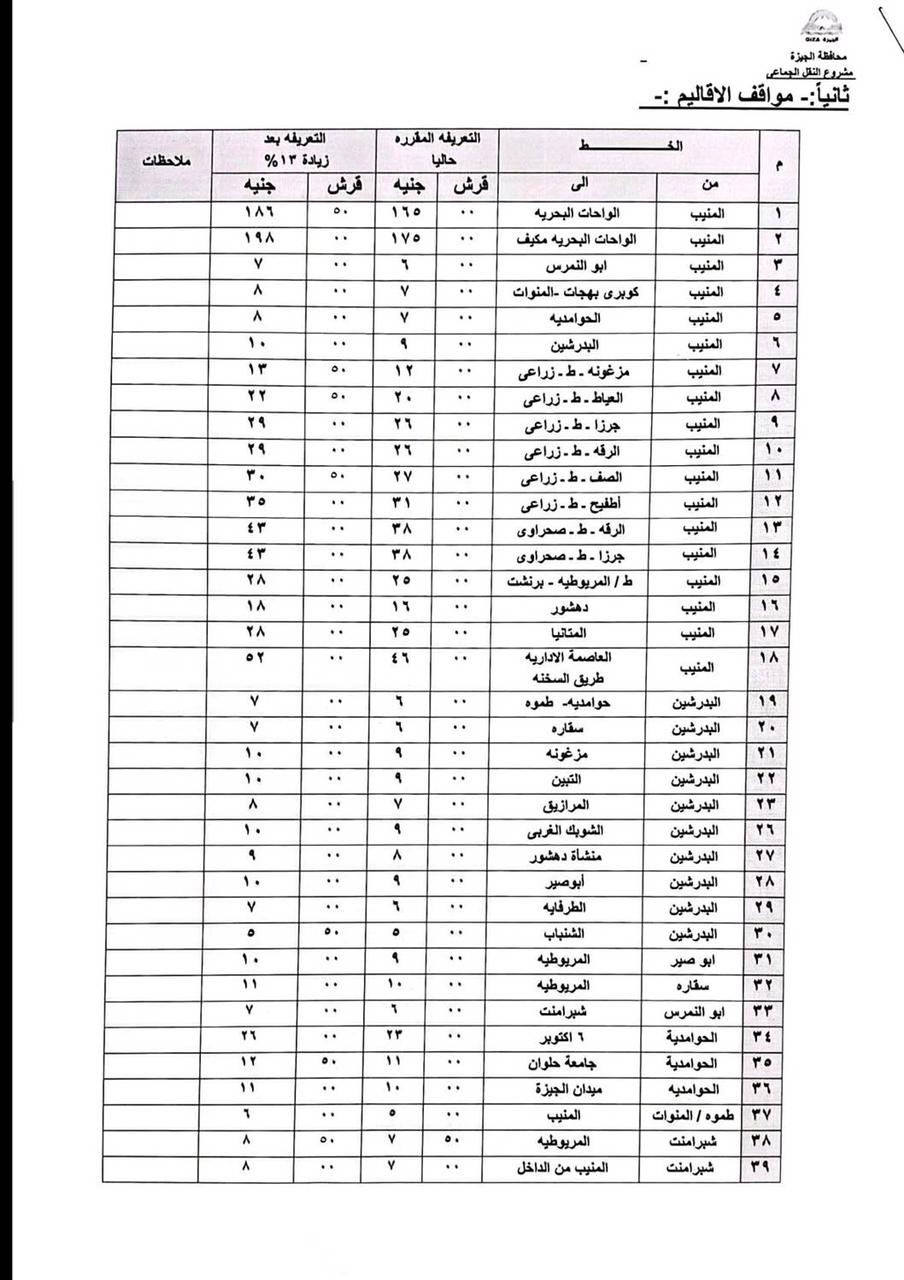 الجيزة GIZA
محافظة الجيزة
مشروع النقل الجماعى
ثانياً:- مواقف الاقاليم :-
م الخـــــــط التعريفه المقرره حاليا التعريفه بعد زيادة ١٣% ملاحظات
من الى قرش جنيه قرش جنيه
١ المنيب الواحات البحريه ٠٠ ١٦٥ ٥٠ ١٨٦
٢ المنيب الواحات البحريه مكيف ٠٠ ١٧٥ ٠٠ ١٩٨
٣ المنيب ابو النمرس ٠٠ ٦ ٠٠ ٧
٤ المنيب كوبرى بهجات -المنوات ٠٠ ٧ ٠٠ ٨
٥ المنيب الحوامديه ٠٠ ٧ ٠٠ ٨
٦ المنيب البدرشين ٠٠ ٩ ٠٠ ١٠
٧ المنيب مزغونه - ط - زراعى ٠٠ ١٢ ٥٠ ١٣
٨ المنيب العياط - ط - زراعى ٠٠ ٢٠ ٥٠ ٢٢
٩ المنيب جرزا - ط - زراعى ٠٠ ٢٦ ٠٠ ٢٩
١٠ المنيب الرقه - ط - زراعى ٠٠ ٢٦ ٠٠ ٢٩
١١ المنيب الصف - ط - زراعى ٠٠ ٢٧ ٥٠ ٣٠
١٢ المنيب أطفيح - ط - زراعى ٠٠ ٣١ ٠٠ ٣٥
١٣ المنيب الرقه - ط - صحراوى ٠٠ ٣٨ ٠٠ ٤٣
١٤ المنيب جرزا - ط - صحراوى ٠٠ ٣٨ ٠٠ ٤٣
١٥ المنيب ط / المريوطيه - برنشت ٠٠ ٢٥ ٠٠ ٢٨
١٦ المنيب دهشور ٠٠ ١٦ ٠٠ ١٨
١٧ المنيب المتانيا ٠٠ ٢٥ ٠٠ ٢٨
١٨ المنيب العاصمة الاداريه طريق السخنه ٠٠ ٤٦ ٠٠ ٥٢
١٩ البدرشين حوامديه- طموه ٠٠ ٦ ٠٠ ٧
٢٠ البدرشين سقاره ٠٠ ٦ ٠٠ ٧
٢١ البدرشين مزغونه ٠٠ ٩ ٠٠ ١٠
٢٢ البدرشين التبين ٠٠ ٩ ٠٠ ١٠
٢٣ البدرشين المرازيق ٠٠ ٧ ٠٠ ٨
٢٦ البدرشين الشوبك الغربى ٠٠ ٩ ٠٠ ١٠
٢٧ البدرشين منشأة دهشور ٠٠ ٨ ٠٠ ٩
٢٨ البدرشين أبوصير ٠٠ ٩ ٠٠ ١٠
٢٩ البدرشين الطرفايه ٠٠ ٦ ٠٠ ٧
٣٠ البدرشين الشنباب ٠٠ ٥ ٥٠ ٥
٣١ ابو صير المريوطيه ٠٠ ٩ ٠٠ ١٠
٣٢ سقاره المريوطيه ٠٠ ١٠ ٠٠ ١١
٣٣ ابو النمرس شبرامنت ٠٠ ٦ ٠٠ ٧
٣٤ الحوامدية ٦ اكتوبر ٠٠ ٢٣ ٠٠ ٢٦
٣٥ الحوامدية جامعة حلوان ٠٠ ١١ ٥٠ ١٢
٣٦ الحوامديه ميدان الجيزة ٠٠ ١٠ ٠٠ ١١
٣٧ طموه / المنوات المنيب ٠٠ ٥ ٠٠ ٦
٣٨ شبرامنت المريوطيه ٥٠ ٧ ٥٠ ٨
٣٩ شبرامنت المنيب من الداخل ٠٠ ٧ ٠٠ ٨